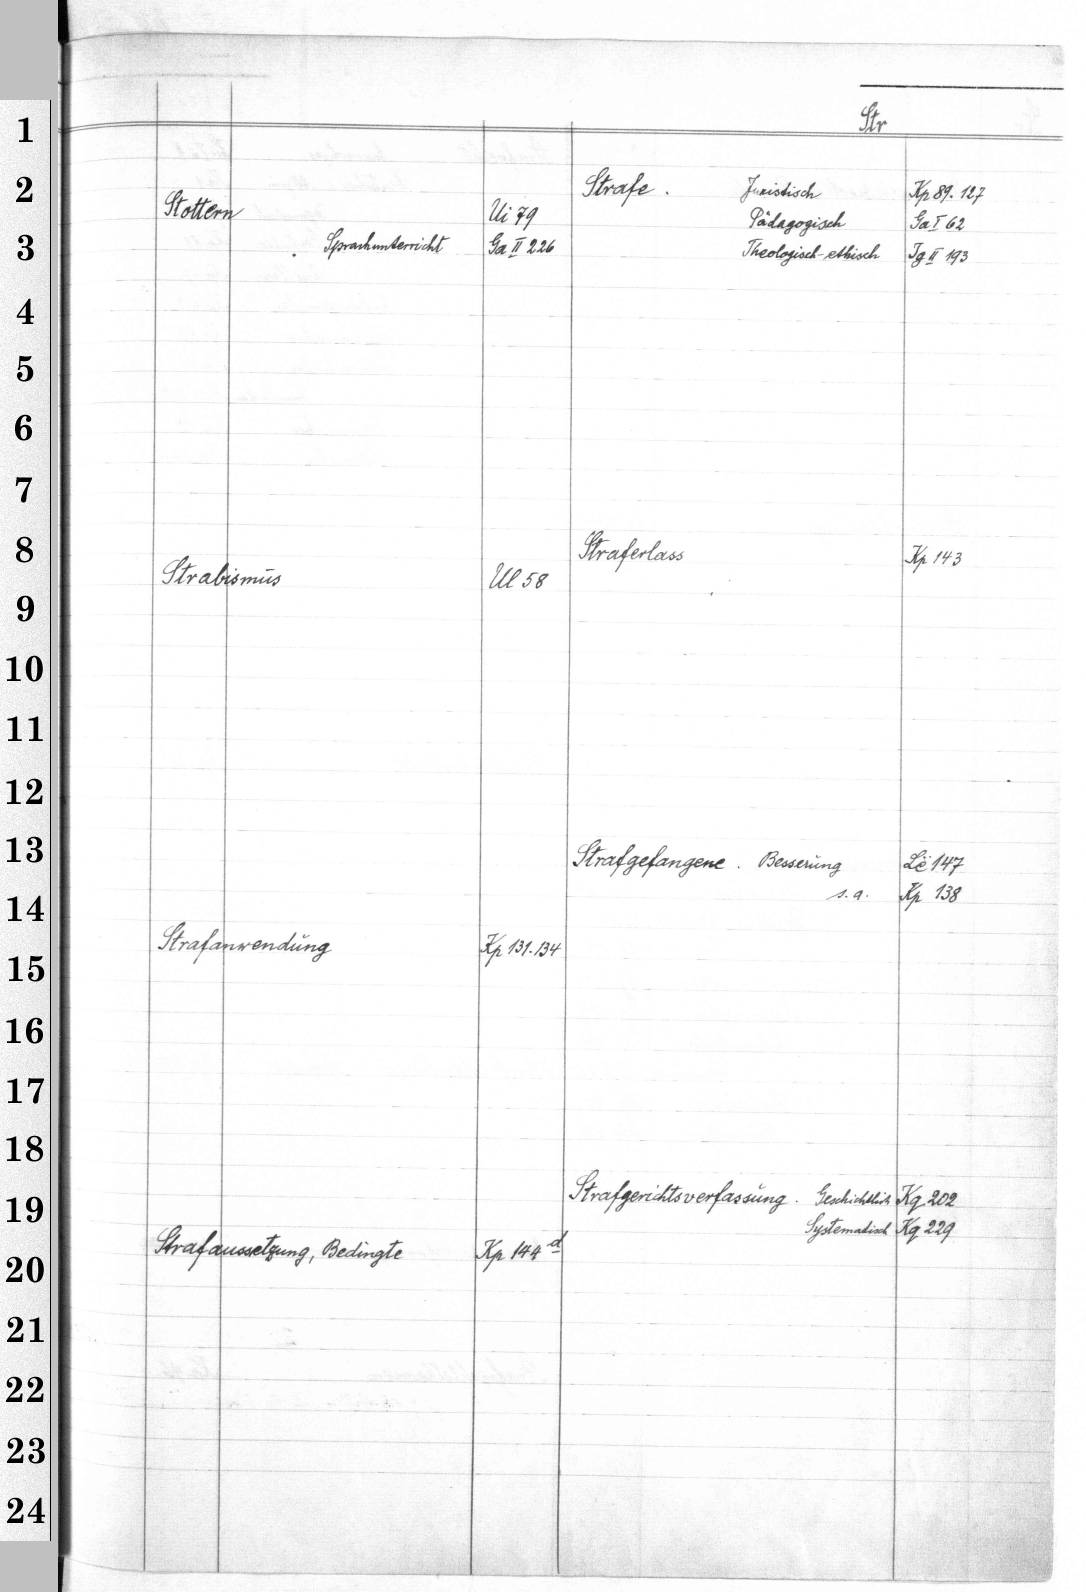 Str
Stottern Ui 79
. Sprachunterricht Ga II 226
Strabismus Ul 58
Strafanwendung Kp 131.134
Strafaussetzung, Bedingte Kp 144 d
Strafe . Juristisch Kp 89. 127
Pädagogisch Ga I 62
Theologisch-ethisch Tg II 193
Straferlass Kp 143
Strafgefangene . Besserung 147
s.a. Kp 138
Strafgerichtsverfassung . Geschichtlich Kg 202
Systematisch Kg 229
1
2
3
4
5
6
7
8
9
10
11
12
13
14
15
16
17
18
19
20
21
22
23
24